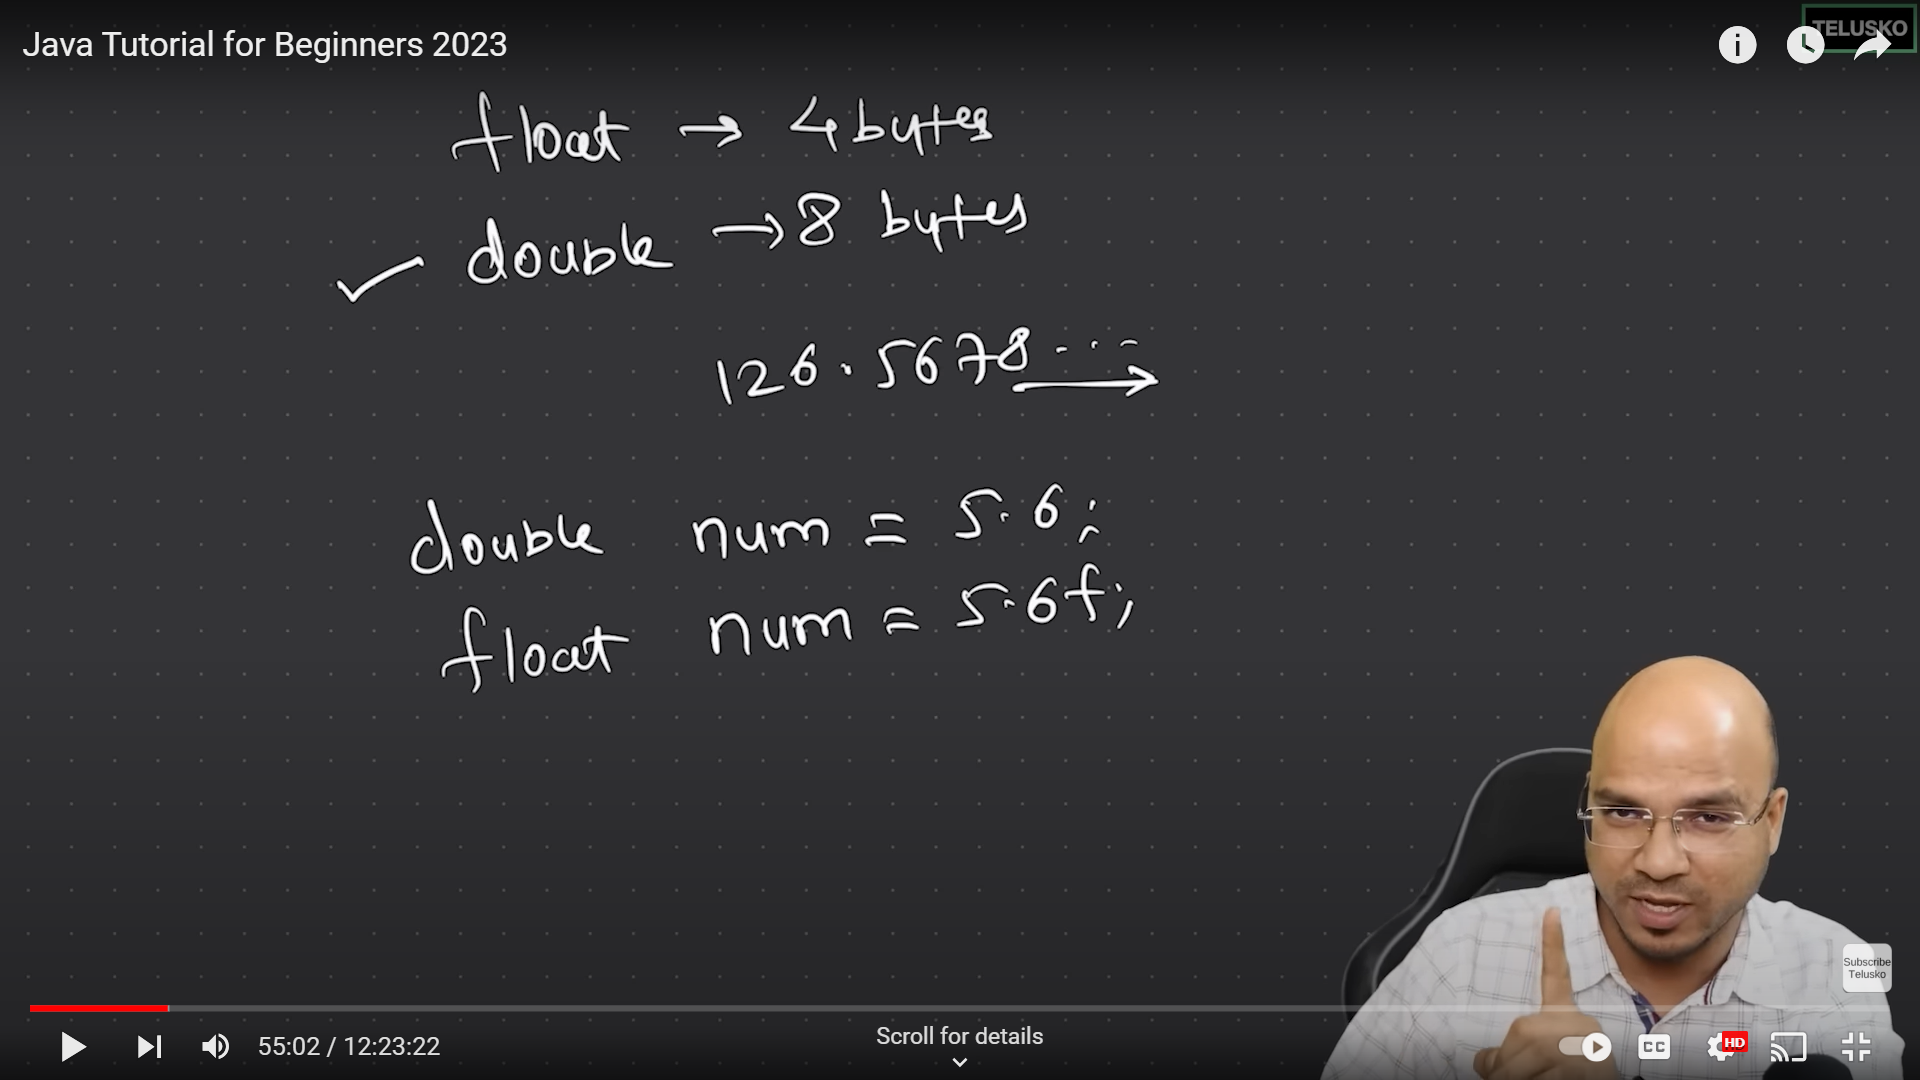 Java Tutorial for Beginners 2023
TELUSKO
float → 4 bytes
✓ double → 8 bytes
126.5678...
double num = 5.6;
float num = 5.6f;
Subscribe
Telusko
55:02 / 12:23:22
Scroll for details
CC
HD